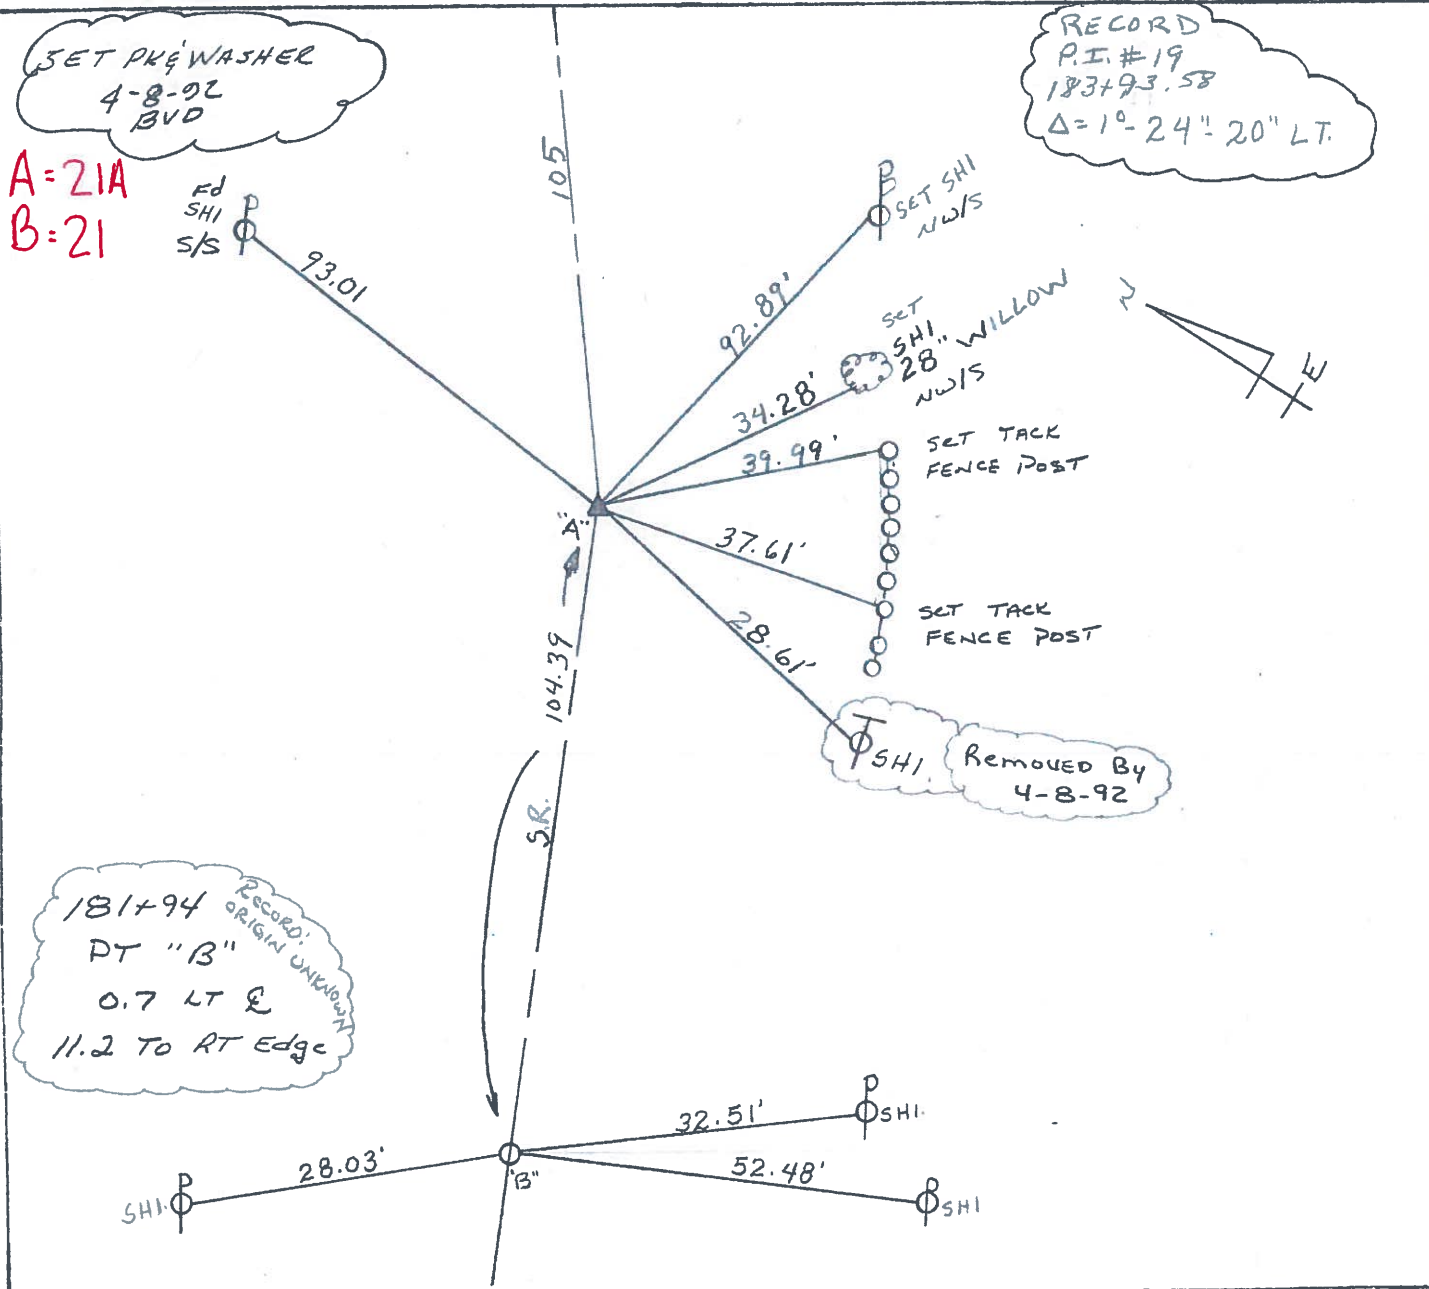 SET PK & WASHER
4-8-92
BVD
RECORD
P.I. # 19
183+93.58
Δ = 1°- 24"- 20" LT.
A = 21A
B = 21
Fd
SHI
S/S
P
93.01
105
P
SET SHI
NW/S
92.89'
SET
SHI
28" WILLOW
NW/S
34.28'
39.99'
SET TACK
FENCE POST
N
E
"A"
37.61'
SET TACK
FENCE POST
28.61'
104.39
T
SHI
REMOVED BY
4-8-92
S.R.
181+94
PT "B"
0.7 LT ℄
11.2 TO RT Edge
RECORD:
ORIGIN UNKNOWN
32.51'
P
SHI.
28.03'
"B"
52.48'
P
SHI.
P
SHI